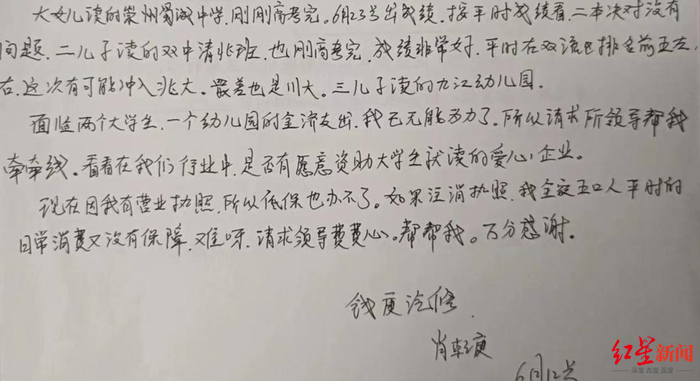 大女儿读的崇州蜀城中学,刚刚高考完。6月23号出成绩,按平时成绩看,二本决对没有
问题,二儿子读的双中清北班,也刚高考完,成绩非常好,平时在双流区排名前五左
右,这次有可能冲入北大。最差也是川大。三儿子读的九江幼儿园.
面临两个大学生,一个幼儿园的经济支出,我已无能为力了。所以请求所领导帮我
牵牵线。看看在我们行业中,是否有愿意资助大学生就读的爱心企业。
现在因我有营业执照,所以低保也办不了。如果注消执照,我全家五口人平时的
日常消费又没有保障,难呀,请求领导费费心。帮帮我。万分感谢。
钱夏汽修
肖
6月12号
红星新闻
深度 态度 温度